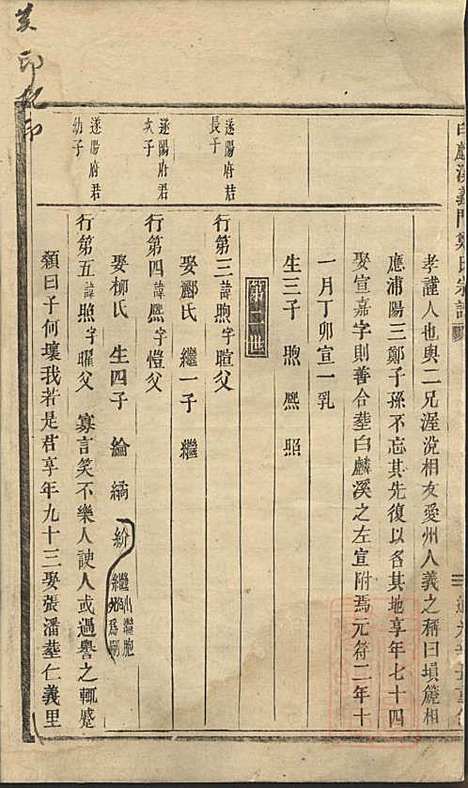 白麟溪義門鄭氏宗譜
孝謹人也與二兄渥涗相友愛州人義之稱曰塤篪相
應浦陽三鄭子孫不忘其先復以名其地享年七十四
娶宣嘉字則善合塟白麟溪之左宣附焉元符二年十
一月丁卯宣一乳
生三子 煦 熈 照
遂陽府君
長子
行第三諱煦字暄父
娶酈氏 繼一子 繼
遂陽府君
次子
行第四諱熈字愷父
娶柳氏 生四子 綸 縞 紛 繼
遂陽府君
幼子
行第五諱照字曜父 寡言笑不樂人諛人或過譽之輒蹙
頞曰子何壤我若是君享年九十三娶張潘塟仁義里
印
印